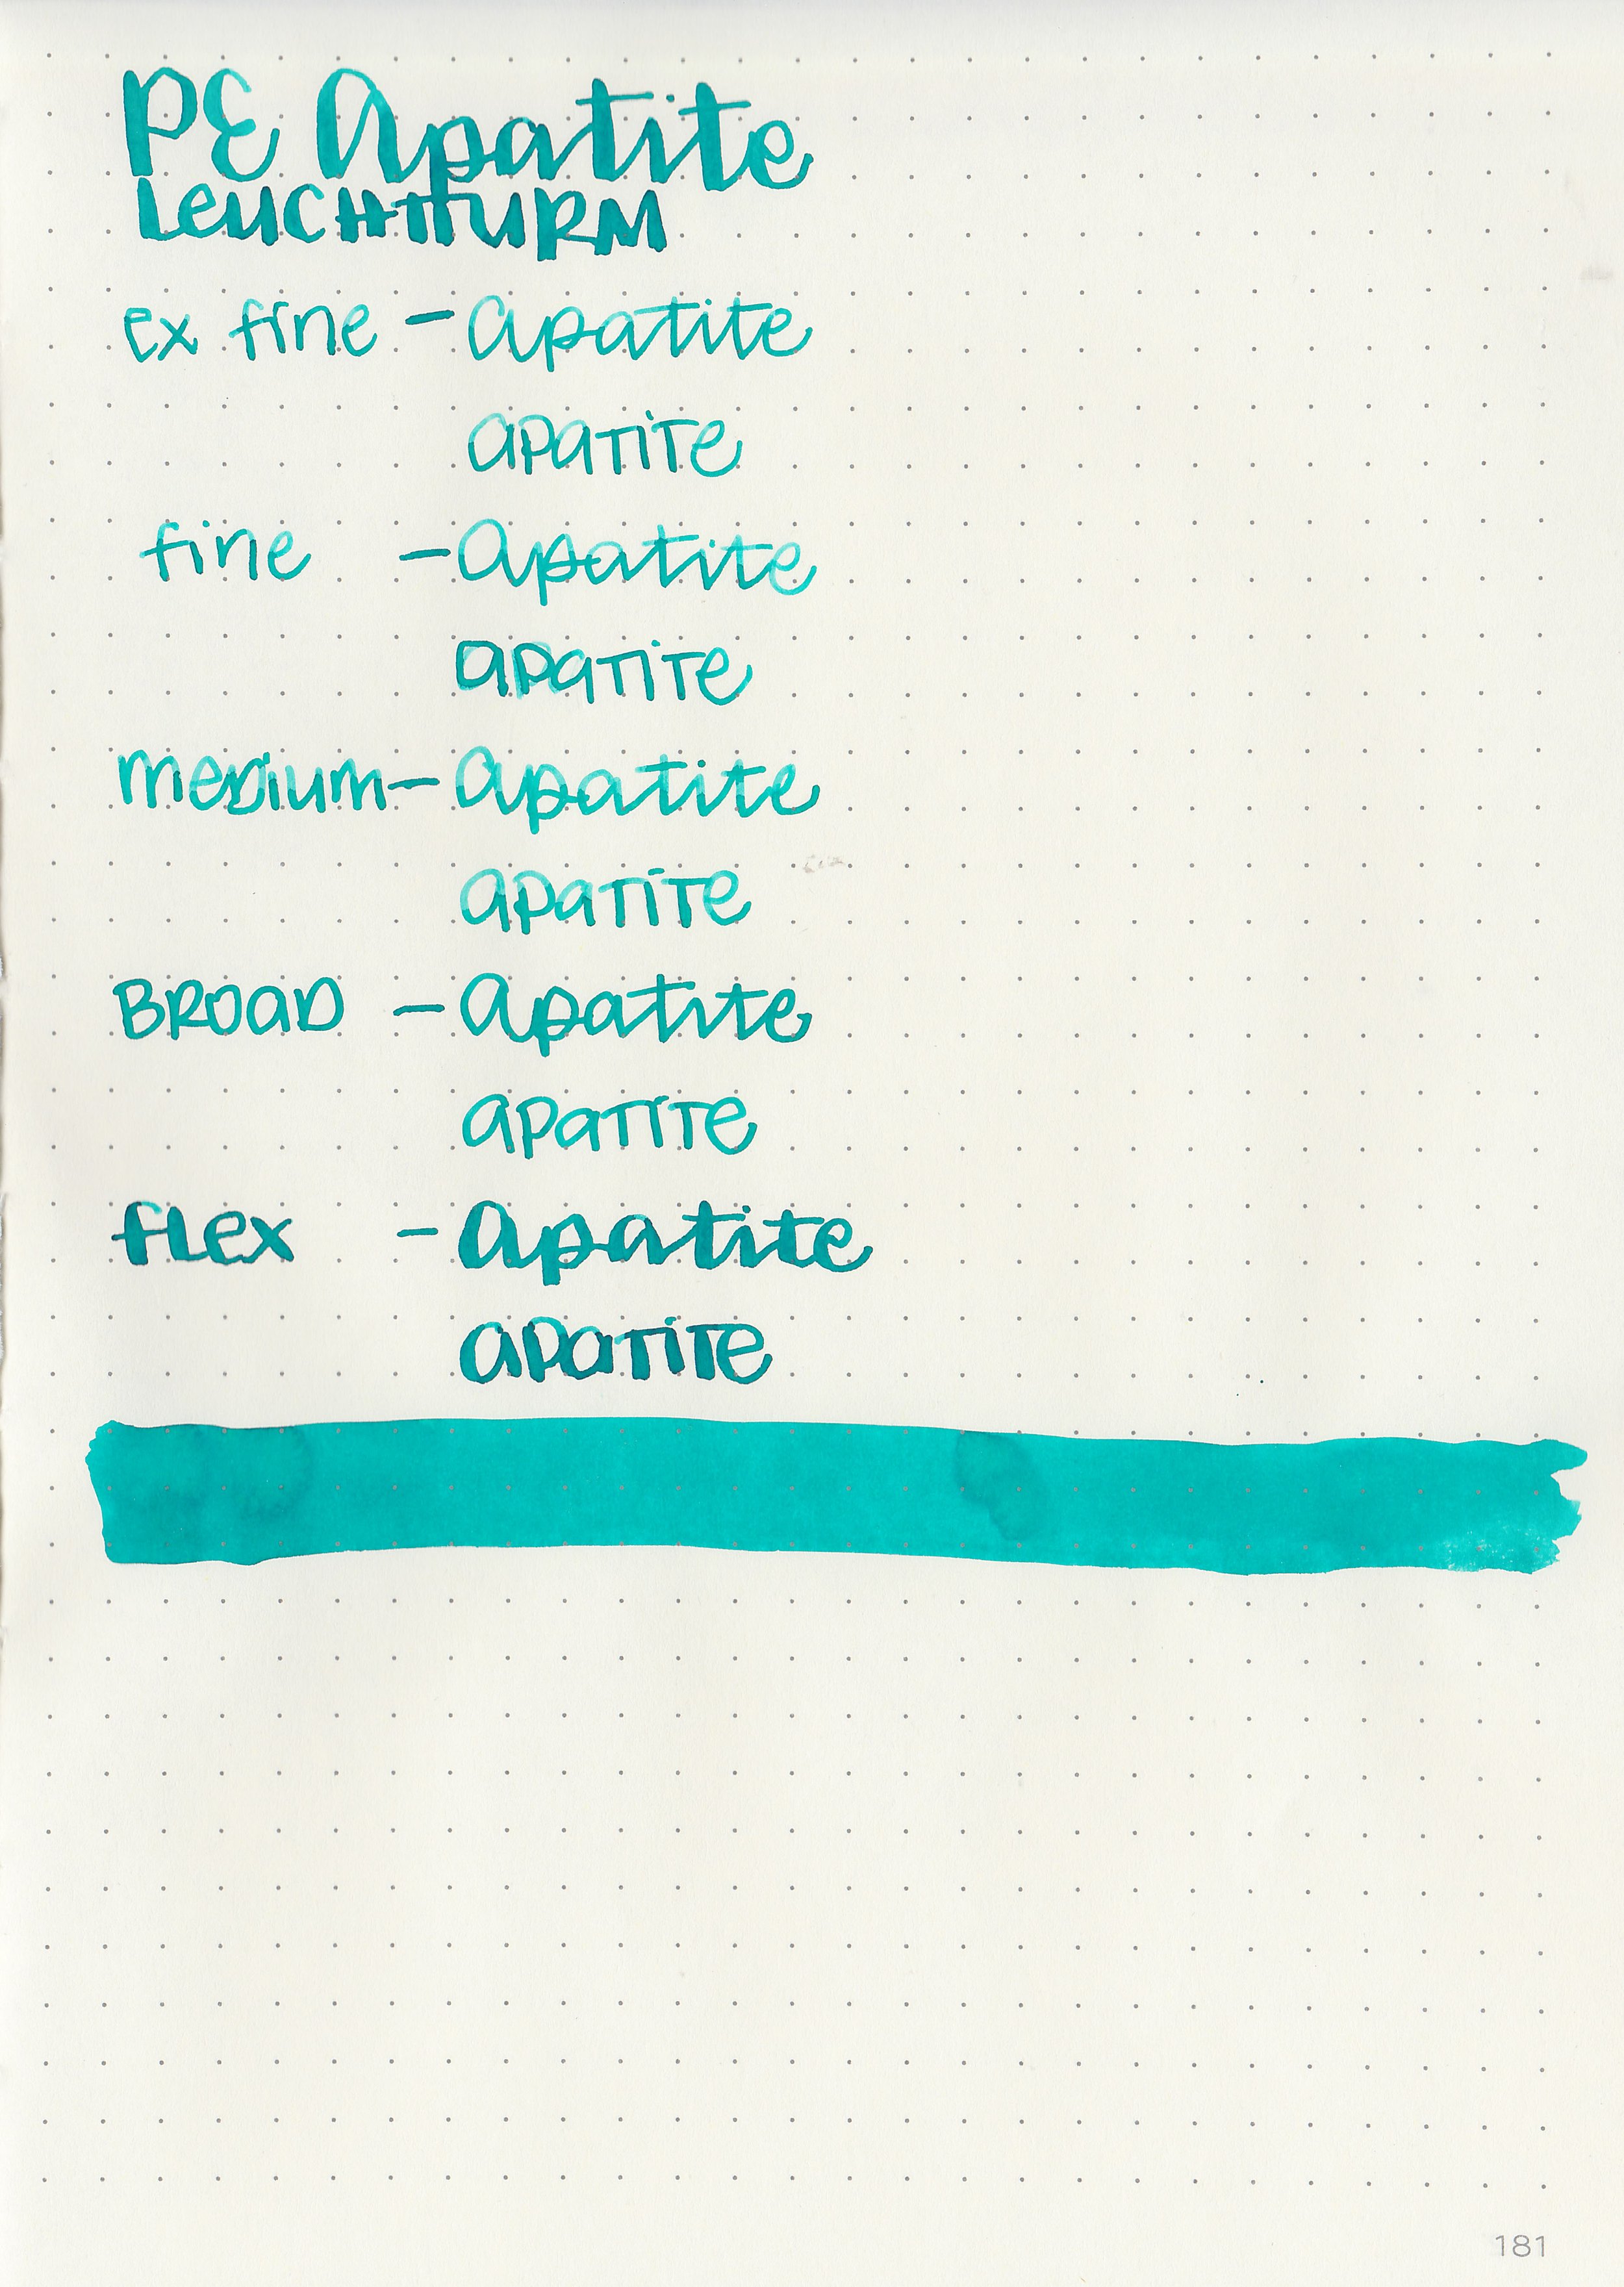 PE Apatite
LEUCHTTURM
ex fine - apatite
apatite
fine - apatite
apatite
medium - apatite
apatite
BROAD - apatite
apatite
flex - apatite
apatite
181